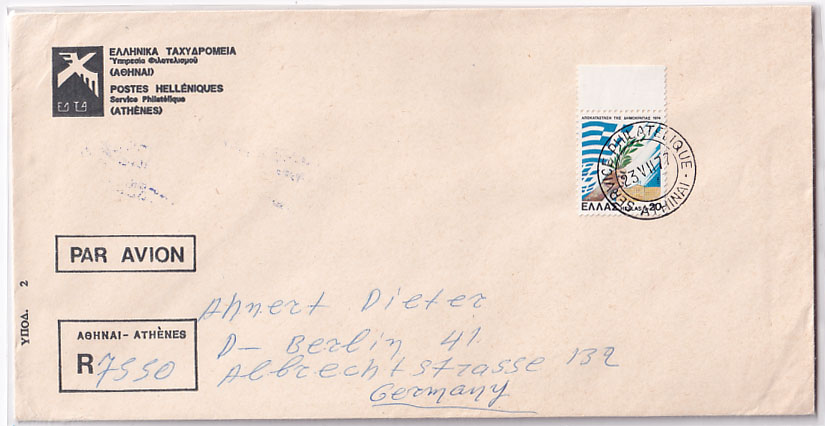 ΕΛΛΗΝΙΚΑ ΤΑΧΥΔΡΟΜΕΙΑ
Ὑπηρεσία Φιλοτελισμοῦ
(ΑΘΗΝΑΙ)
POSTES HELLÉNIQUES
Service Philatélique
(ATHÈNES)
ΕΛΤΑ
ΑΠΟΚΑΤΑΣΤΑΣΗ ΤΗΣ ΔΗΜΟΚΡΑΤΙΑΣ 1974
ΕΛΛΑΣ HELLAS 20
SERVICE PHILATELIQUE
23.VII.77
-ATHINAI-
PAR AVION
ΥΠΟΔ. 2
ΑΘΗΝΑΙ - ATHÈNES
R 7550
Ahnert Dieter
D- Berlin 41
Albrechtstrasse 132
Germany